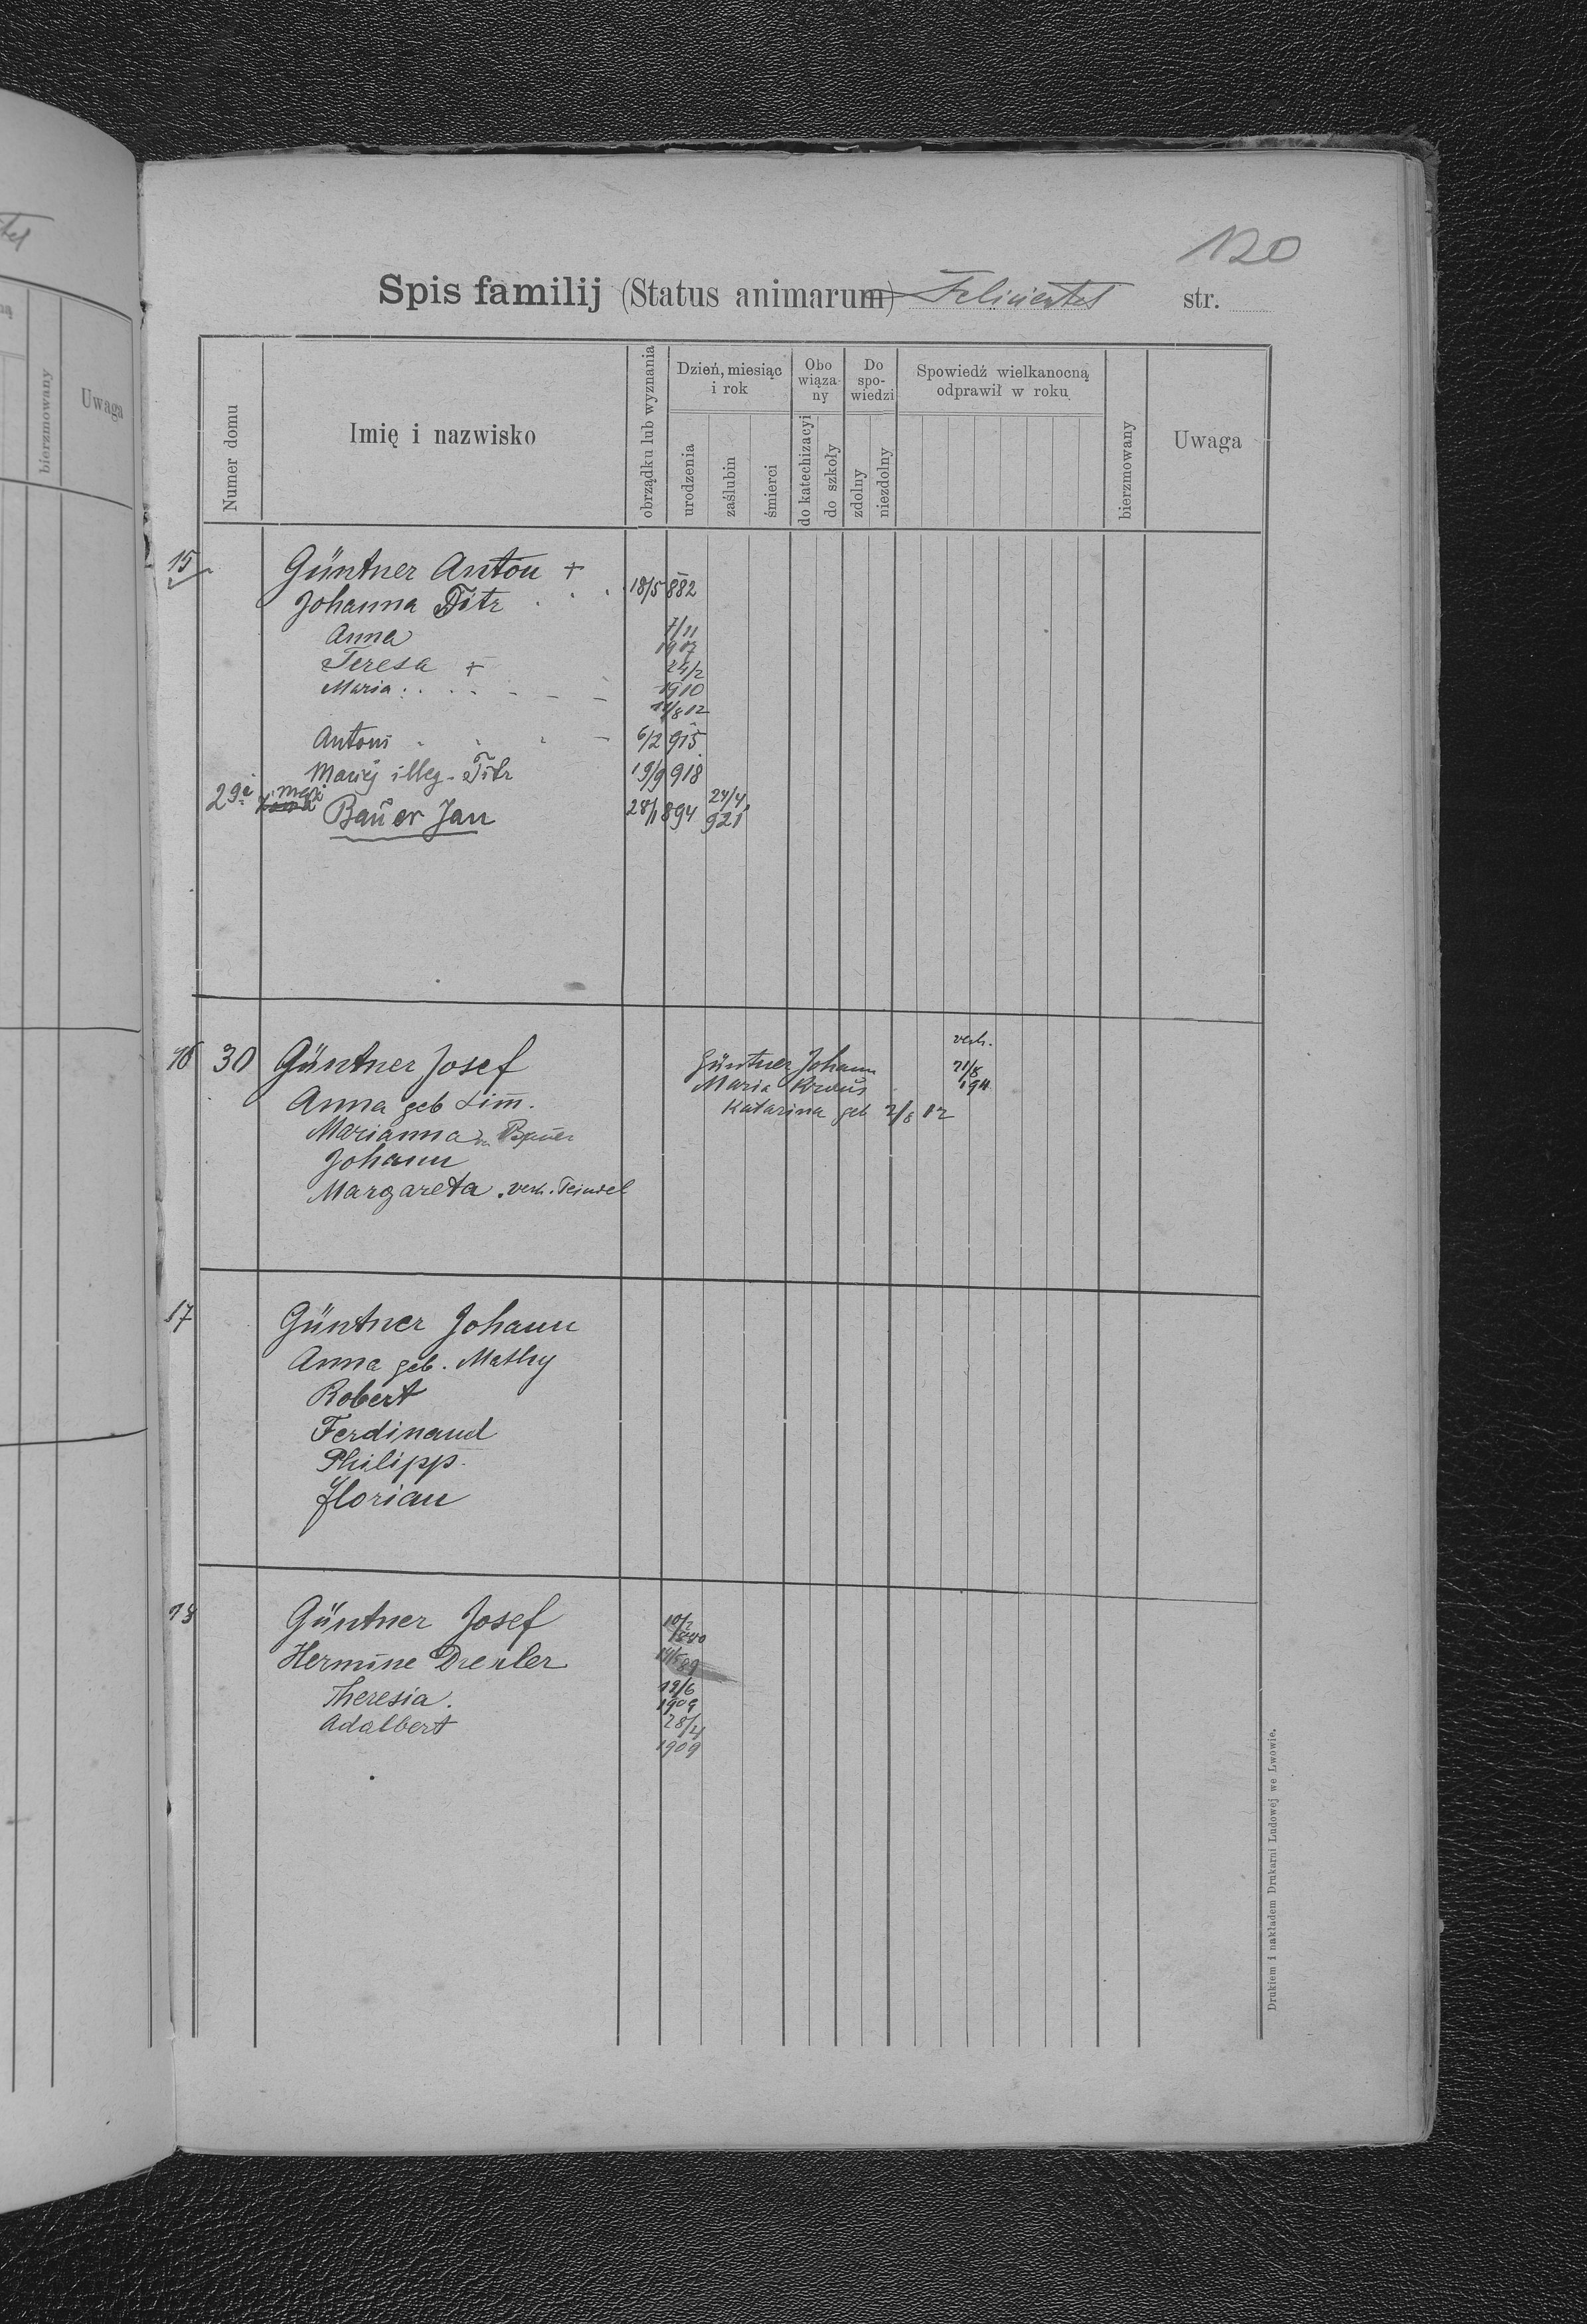 tel
bierzmowany
Uwaga
120
Spis familij (Status animarum) Felicientel str.
Numer domu
Imię i nazwisko
obrządku lub wyznania
Dzień, miesiąc i rok
urodzenia
zaślubin
śmierci
Obowiązany
do katechizacyi
do szkoły
Do spowiedzi
zdolny
niezdolny
Spowiedź wielkanocną odprawił w roku
bierzmowany
Uwaga
15
Güntner Anton +
Johanna Titz 18/5 882
Anna 7/11 1907
Teresa + 24/2 1910
Maria 11/8 12
Antoni 6/2 915
Maciej illeg. Titz 19/9 918
29a mąż Baŭer Jan 28/1 894 24/4 921
16 30 Güntner Josef
Anna geb Lim̄.
Marianna Baŭer
Johann
Margareta . verh. Teindel
Güntner Johann verh. 21/8
Maria Kraŭs 1911
Katarina geb 2/8 12
17
Güntner Johann
Anna geb. Mathy
Robert
Ferdinand
Philipp.
Florian
18
Güntner Josef 10/2 1880
Hermine Drexler 14/5 89
Theresia. 12/6
Adalbert 28/4 1909
Drukiem i nakładem Drukarni Ludowej we Lwowie.